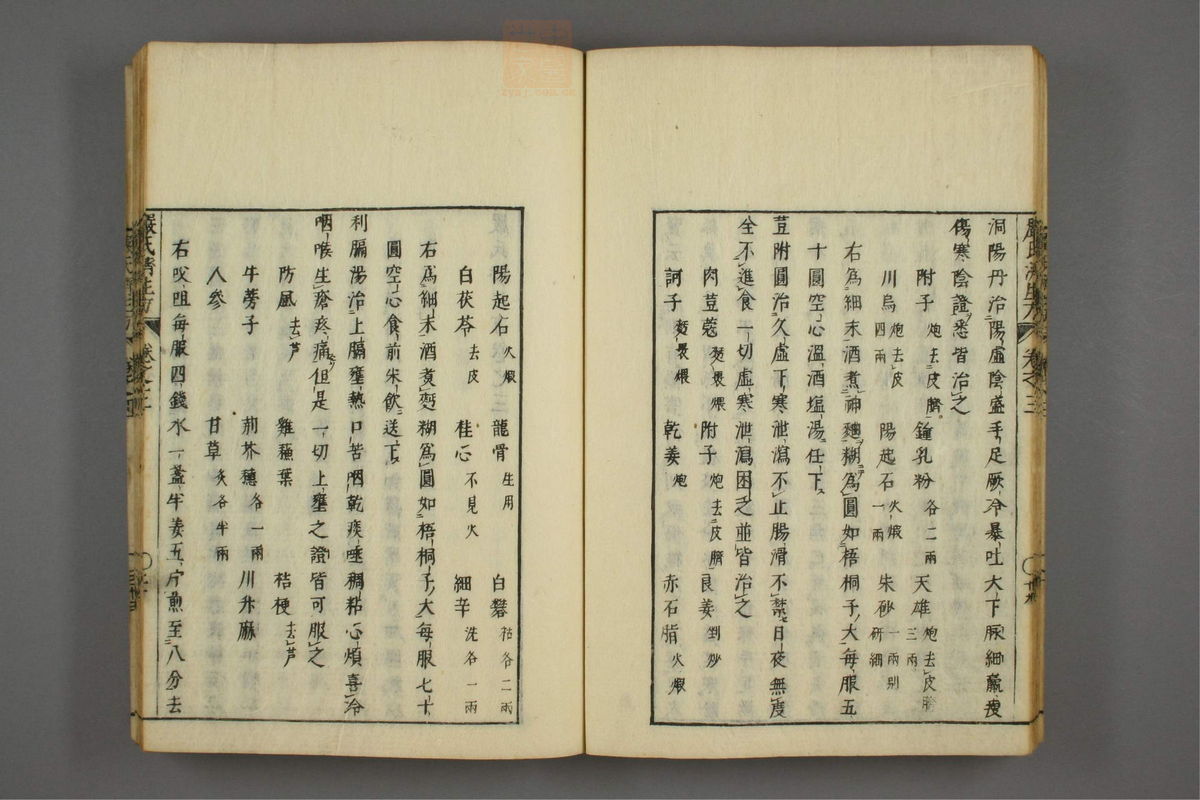 洞陽丹治陽虛陰盛手足厥冷暴吐大下脈細羸瘦
傷寒陰證悉皆治之
附子炮去皮臍 鍾乳粉各二兩 天雄炮去皮臍三兩
川烏炮去皮四兩 陽起石火煅一兩 朱砂一兩別研細
右為細末酒煮神麯糊為圓如梧桐子大每服五
十圓空心溫酒塩湯任下
荳附圓治久虛下寒泄瀉不止腸滑不禁日夜無度
全不進食一切虛寒泄瀉困乏並皆治之
肉荳蔻麪裹煨 附子炮去皮臍 良姜剉炒
訶子麪裹煨 乾姜炮 赤石脂火煅
陽起石火煅 龍骨生用 白礬枯各二兩
白茯苓去皮 桂心不見火 細辛洗各一兩
右為細末酒煮麪糊為圓如梧桐子大每服七十
圓空心食前米飲送下
利膈湯治上膈壅熱口苦咽乾痰唾稠粘心煩喜冷
咽喉生瘡疼痛但是一切上壅之證皆可服之
防風去芦 雞蘓葉 桔梗去芦
牛蒡子 荊芥穗各一兩 川升麻
人參 甘草炙各半兩
右㕮咀每服四錢水一盞半姜五片煎至八分去